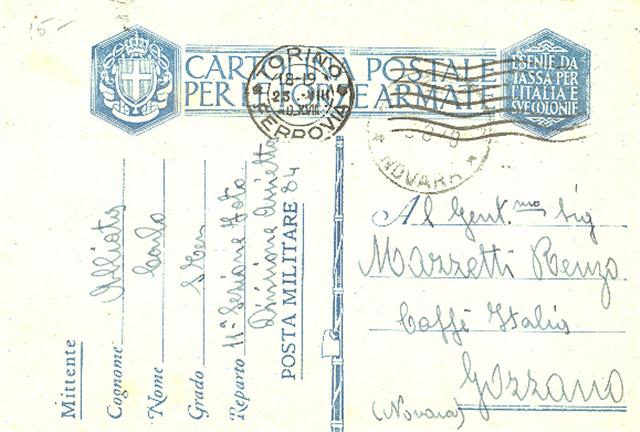 15-
CARTOLINA POSTALE
PER LE FORZE ARMATE
ESENTE DA
TASSA PER
L'ITALIA E
SVE COLONIE
TORINO
18-19
FERROVIA
NOVARA
Mittente
Cognome
Nome Carlo
Grado
Reparto 11ª Sezione
Divisione
POSTA MILITARE 84
Al Gent.mo Sig
Mazzetti Renzo
Caffè Italia
Gozzano
(Novara)